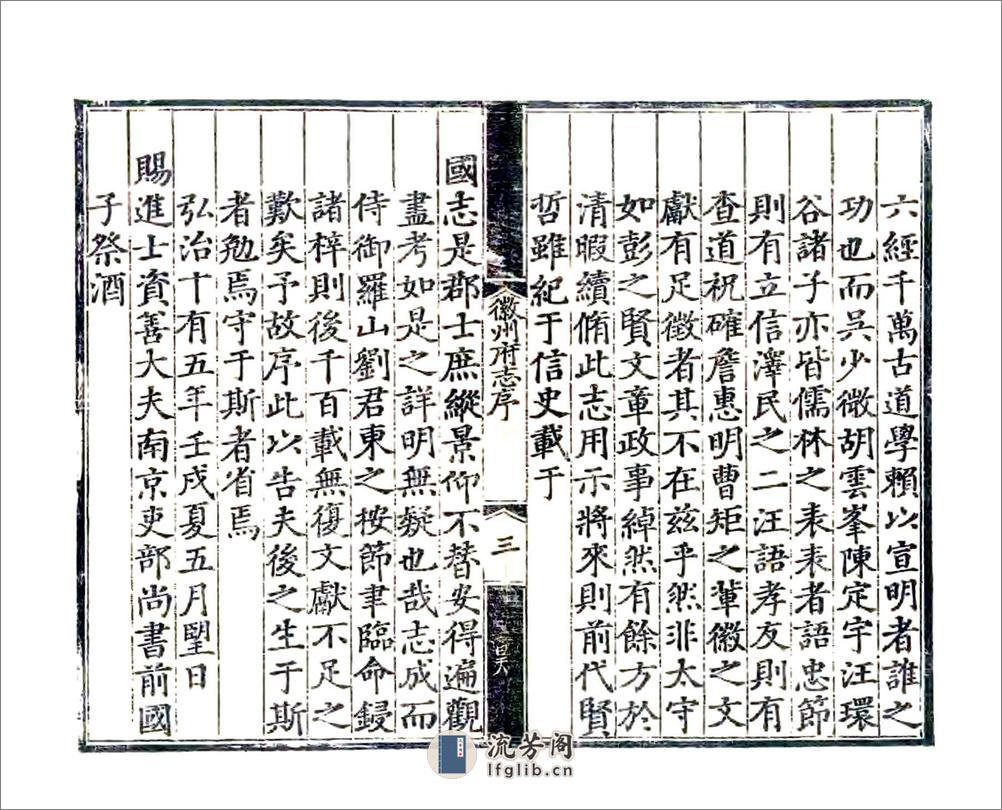 六經千萬古道學賴以宣明者誰之
功也而吳少微胡雲峯陳定宇汪環
谷諸子亦皆儒林之表表者語忠節
則有立信澤民之二汪語孝友則有
查道祝確詹惠明曹矩之軰徽之文
獻有足徵者其不在兹乎然非太守
如彭之賢文章政事綽然有餘方於
清暇續脩此志用示將來則前代賢
哲雖紀于信史載于
徽州府志序
三
國志是郡士庶縱景仰不替安得遍觀
盡考如是之詳明無疑也哉志成而
侍御羅山劉君東之按節聿臨命鋟
諸梓則後千百載無復文獻不足之
歎矣予故序此以告夫後之生于斯
者勉焉守于斯者省焉
弘治十有五年壬戌夏五月朢日
賜進士資善大夫南京吏部尚書前國
子祭酒
流芳阁
lfglib.cn